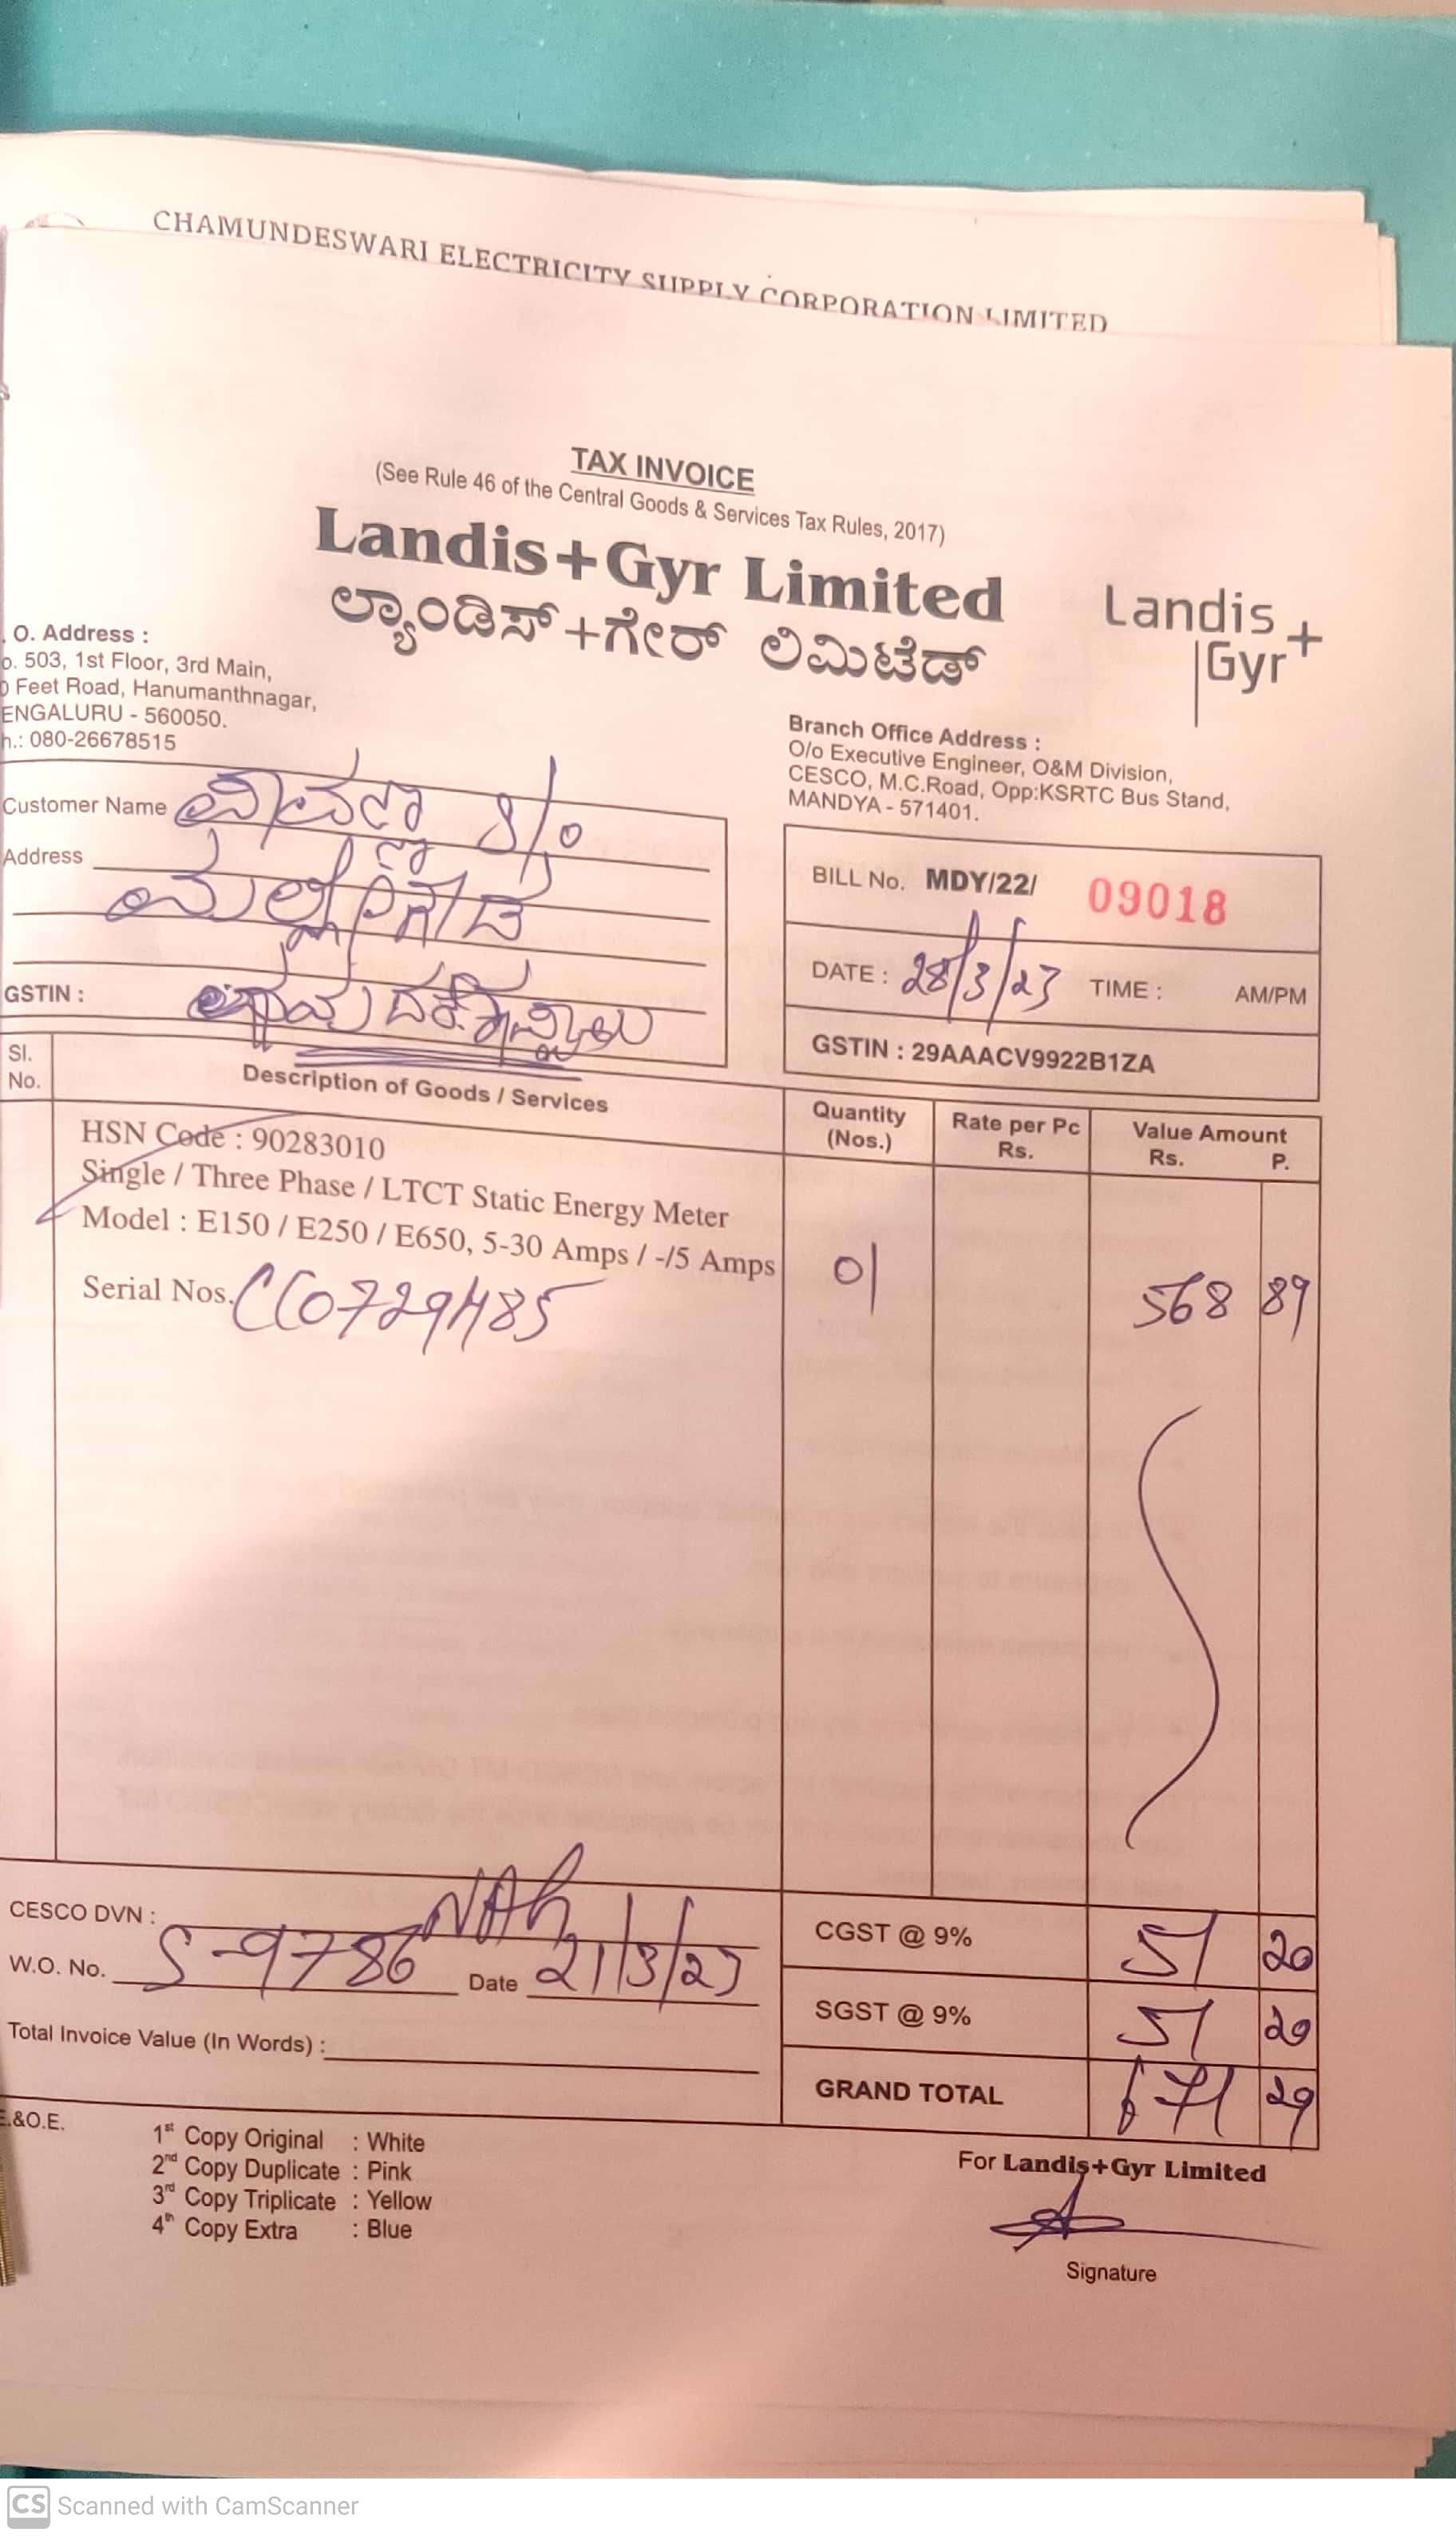 CHAMUNDESWARI ELECTRICITY SUPPLY CORPORATION LIMITED
TAX INVOICE
(See Rule 46 of the Central Goods & Services Tax Rules, 2017)
Landis+Gyr Limited
ಲ್ಯಾಂಡಿಸ್+ಗೇರ್ ಲಿಮಿಟೆಡ್
Landis
Gyr+
. O. Address :
o. 503, 1st Floor, 3rd Main,
0 Feet Road, Hanumanthnagar,
ENGALURU - 560050.
h.: 080-26678515
Branch Office Address :
O/o Executive Engineer, O&M Division,
CESCO, M.C.Road, Opp:KSRTC Bus Stand,
MANDYA - 571401.
Customer Name S/o
Address
GSTIN :
BILL No. MDY/22/ 09018
DATE : 28/3/23 TIME : AM/PM
GSTIN : 29AAACV9922B1ZA
Sl. No. Description of Goods / Services Quantity (Nos.) Rate per Pc Rs. Value Amount Rs. P.
HSN Code : 90283010
Single / Three Phase / LTCT Static Energy Meter
Model : E150 / E250 / E650, 5-30 Amps / -/5 Amps 01
Serial Nos. CC0729485 568 89
CESCO DVN :
W.O. No. S-9786 Date 21/3/23
Total Invoice Value (In Words) :
CGST @ 9% 51 20
SGST @ 9% 51 20
GRAND TOTAL 671 29
E.&O.E.
1st Copy Original : White
2nd Copy Duplicate : Pink
3rd Copy Triplicate : Yellow
4th Copy Extra : Blue
For Landis+Gyr Limited
Signature
CS Scanned with CamScanner